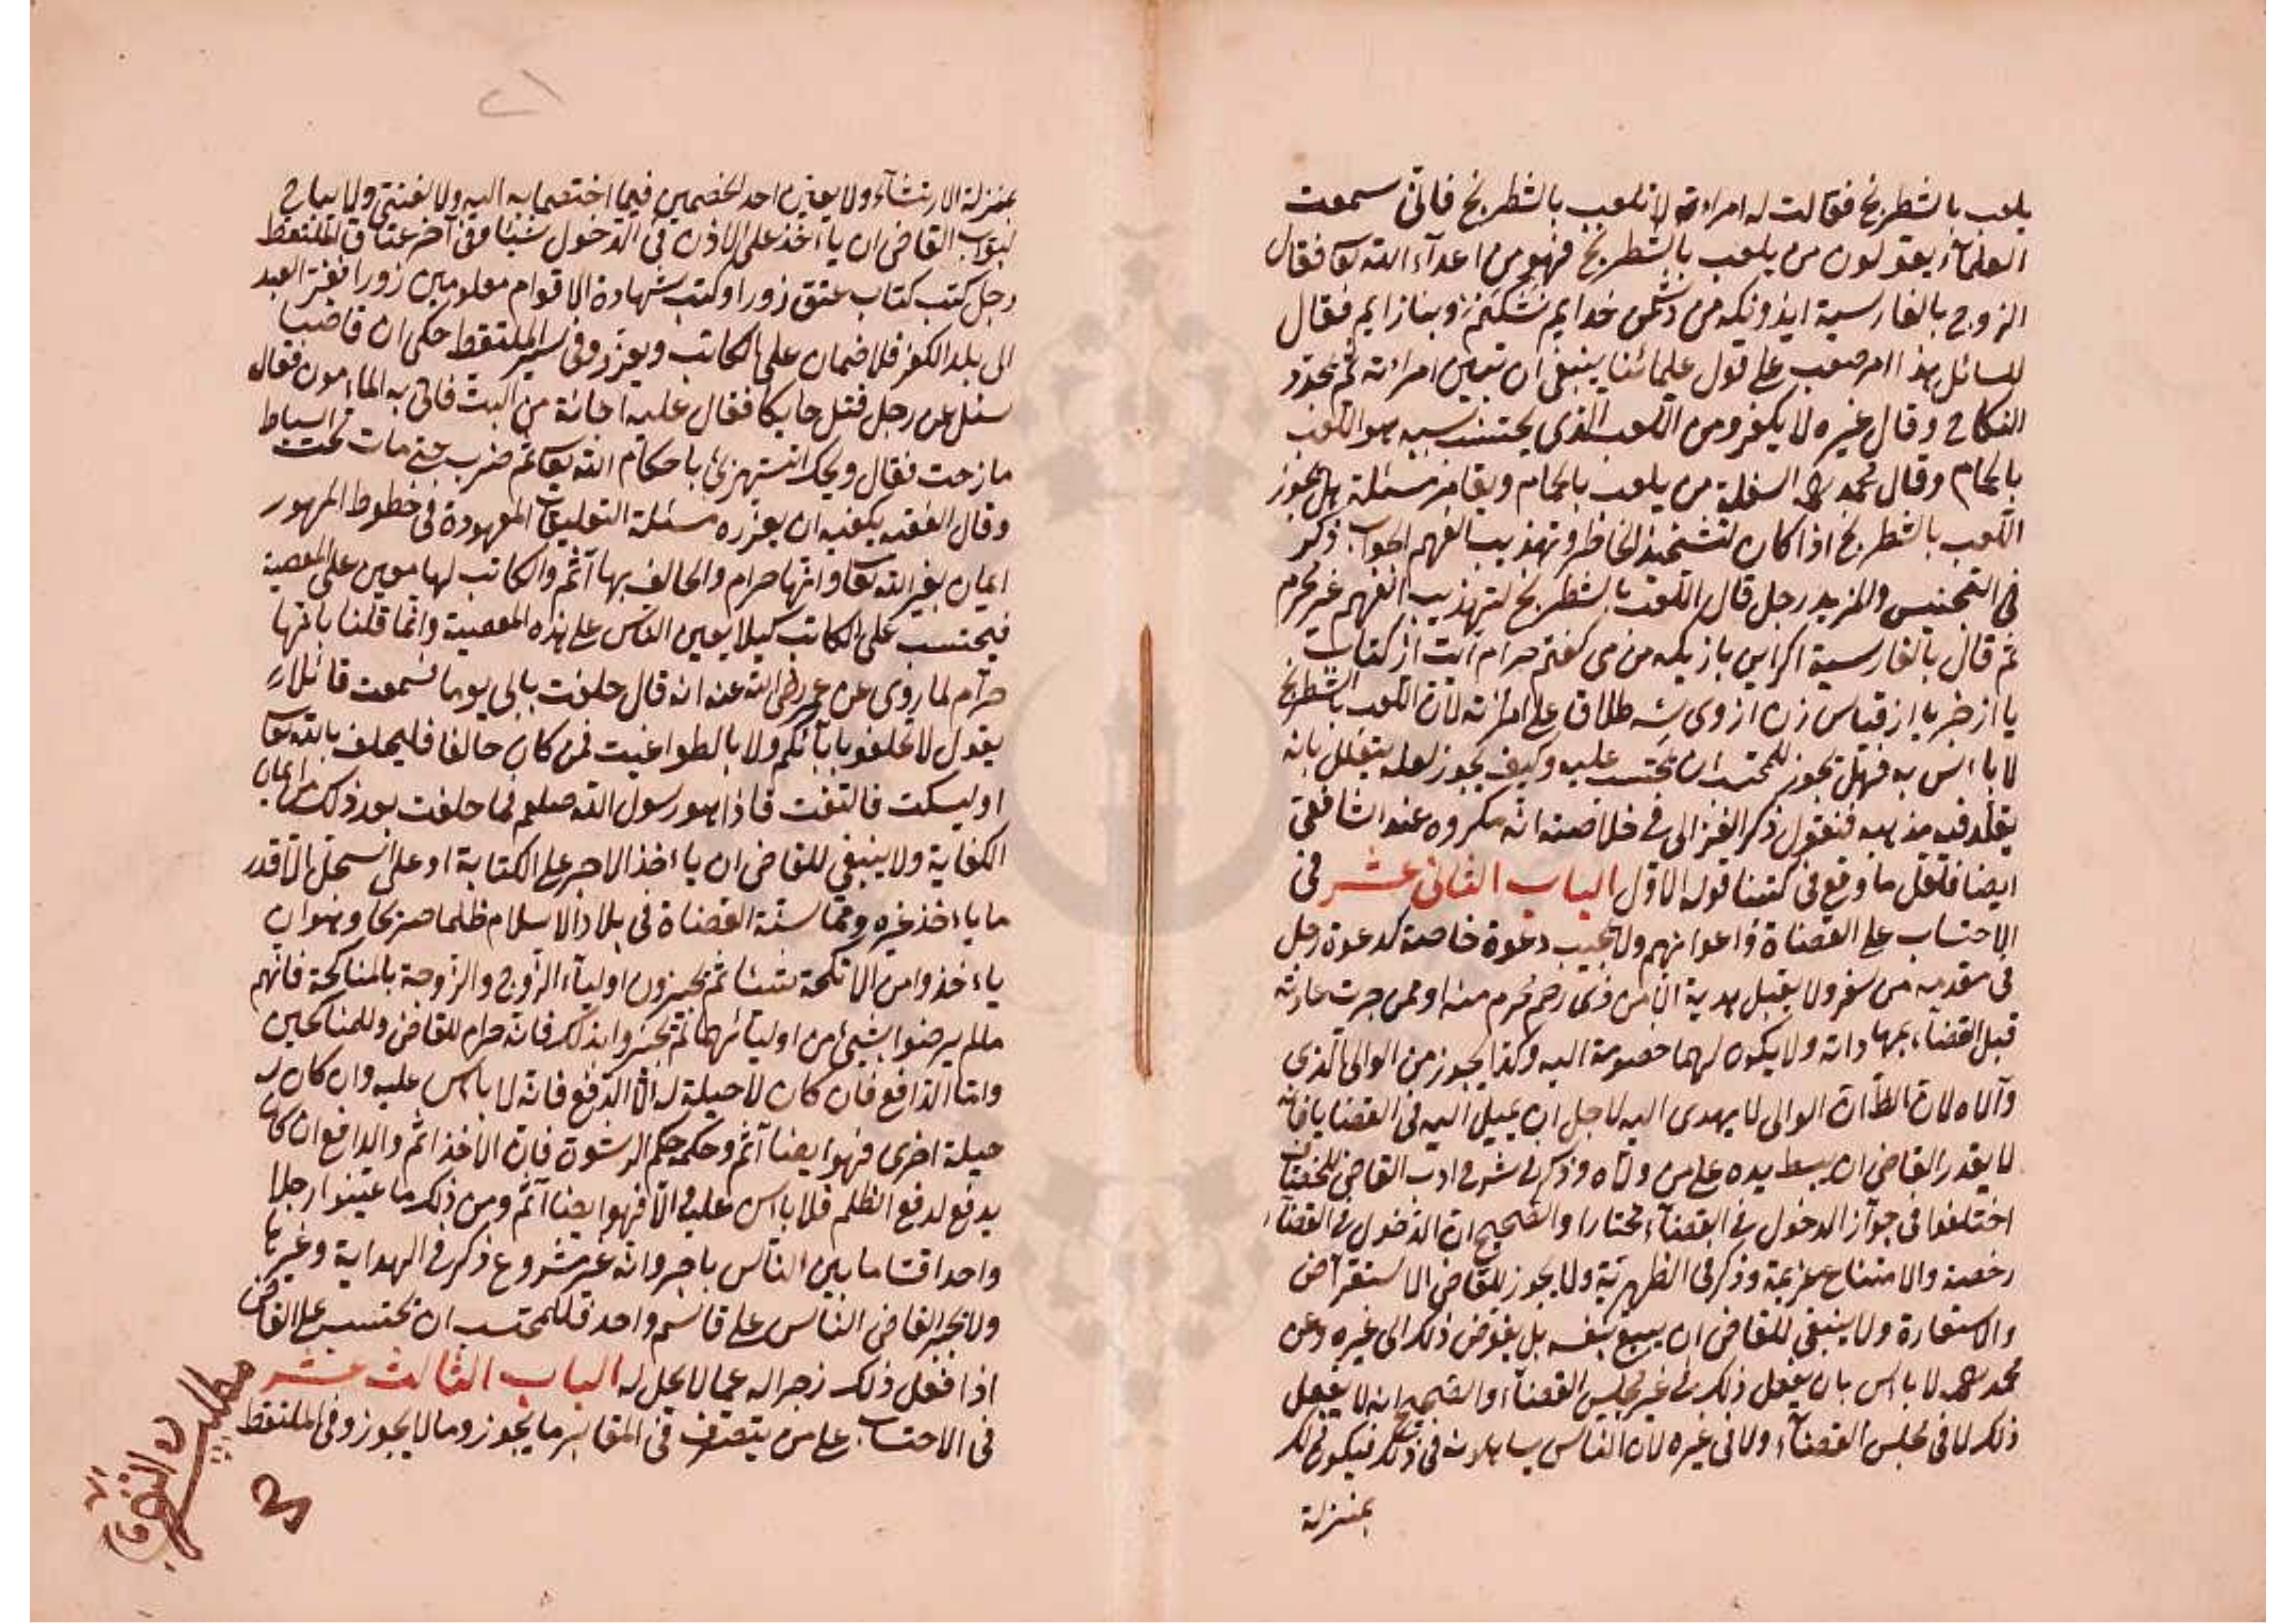 يلعب بالشطرنج فقالت له امراءته لا تلعب بالشطرنج فانى سمعت
العلمآء يقولون من يلعب بالشطرنج فهو من اعدآء الله تعا فقال
الزوج بالفارسية ايذونكه من دشمن خدايم نشكنم وبنازايم فقال
للسائل هذا امر صعب على قول علمائنا ينبغى ان تبين امراته ثم يجدد
النكاح وقال غيره لا يكفر ومن اللعب الذى يحتسب بسببه هو اللعب
بالحمام وقال محمد رحمه السفلة من يلعب بالحمام ويقامر مسئلة هل يجوز
اللعب بالشطرنج اذا كان لتشحيذ الخاطر وتهذيب الفهم الجواب ذكر
فى التجنيس والمزيد رجل قال اللعب بالشطرنج لتهذيب الفهم غير محرم
ثم قال بالفارسية اكر اين بازيكه من مى كفتم حرام است از كتاب
يا از خبر يا از قياس زن از وى سه طلاق على امراته لان اللعب بالشطرنج
لا باءس به فهل يجوز للمحتسب ان يحتسب عليه وكيف يجوز لعله يتعلل بانه
يقلد فيه مذهبه فنقول ذكر الغزالى فى خلاصته انه مكروه عند الشافعى
ايضا فلعل ما وقع فى كتبنا قوله الاول الباب الثانى عشر فى
الاحتساب على القضاة واعوانهم ولا يجيب دعوة خاصة كدعوة رجل
فى مقدمه من سفر ولا يقبل هدية الا من ذى رحم محرم منه او ممن جرت عادته
قبل القضآء بمهاداته ولا يكون لهما خصومة اليه وكذا يجوز من الوالى الذى
ولاه لان الظ ان الوالى لا يهدى اليه لاجل ان يميل اليه فى القضايا فانه
لا يقدر القاضى ان يبسط يده على من ولاه وذكر فى شرح ادب القاضى للخصاف
اختلفوا فى جواز الدخول فى القضآء مختارا والصحيح ان الدخول فى القضآء
رخصة والامتناع عزيمة وذكر فى الظهيرية ولا يجوز للقاضى الاستقراض
والاستعارة ولا ينبغى للقاضى ان يبيع بنفسه بل يفوض ذلك الى غيره وعن
محمد رحمه لا باس بان يفعل ذلك فى غير مجلس القضآء والصحيح انه لا يفعل
ذلك لا فى مجلس القضآء ولا فى غيره لان الناس يساهلونه فى ذلك فيكون ذلك
بمنزلة
بمنزلة الارتشآء ولا يفتى احد الخصمين فيما اختصما به اليه ولا لغنى ولا يباح
لبواب القاضى ان يأخذ على الاذن فى الدخول شيئا وفى آخر عتاق الملتقط
رجل كتب كتاب عتق زورا وكتب شهادة الاقوام معلومين زورا ففر العبد
الى بلد الكفر فلا ضمان على الكاتب ويعزر وفى سير الملتقط حكى ان قاضيا
سئل عن رجل قتل حايكا فقال عليه احائة من البيت فاتى به الماءمون فقال
مازحت فقال ويحك اتستهزئ باحكام الله تعا ثم ضرب حتى مات تحت السياط
وقال الفقيه يكفيه ان يعزره مسئلة التعليقات المعهودة فى خطوط المهور
ايمان بغير الله تعا وانها حرام والحالف بها آثم والكاتب لها معين على المعصية
فيحتسب على الكاتب كيلا يعين الناس على هذه المعصية وانما قلنا بانها
حرام لما روى عن عمر رضى الله عنه انه قال حلفت بابى يوما فسمعت قائلا
يقول لا تحلفوا بآبائكم ولا بالطواغيت فمن كان حالفا فليحلف بالله تعا
او ليسكت فالتفت فاذا هو رسول الله صلعم فما حلفت بعد ذلك من ايمان
الكفاية ولا ينبغى للقاضى ان ياءخذ الاجر على الكتابة او على السجل الا قدر
ما ياءخذ غيره ومما سنته القضاة فى بلاد الاسلام ظلما صريحا وهو ان
ياءخذوا من الانكحة شيئا ثم يجيزون اوليآء الزوج والزوجة بالمناكحة فانهم
ما لم يرضوا بشيئ من اوليائهما لم يجيزوا بذلك فانه حرام للقاضى وللمناكحين
واما الدافع فان كان لا حيلة له الا الدفع فانه لا باس عليه وان كان له
حيلة اخرى فهو ايضا آثم وحكمه حكم الرشوة فان الاخذ اثم والدافع ان كان
يدفع لدفع الظلم فلا باس عليه والا فهو ايضا آثم ومن ذلك ما عينوا رجلا
واحدا قساما بين الناس باجر وانه غير مشروع ذكر فى الهداية وغيرها
ولا يجبر القاضى الناس على قاسم واحد فللمحتسب ان يحتسب على القاضى
اذا فعل ذلك زجرا له عما لا يحل له الباب الثالث عشر
فى الاحتساب على من يتصرف فى المقابر ما يجوز وما لا يجوز وفى الملتقط